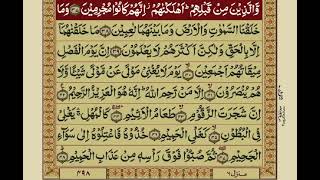 وَّالَّذِيْنَ مِنْ قَبْلِهِمْ ؕ اَهْلَكْنٰهُمْ ؗ اِنَّهُمْ كَانُوْا مُجْرِمِيْنَ ﴿۳۷﴾ وَمَا
خَلَقْنَا السَّمٰوٰتِ وَالْاَرْضَ وَمَا بَيْنَهُمَا لٰعِبِيْنَ ﴿۳۸﴾ مَا خَلَقْنٰهُمَاۤ
اِلَّا بِالْحَقِّ وَلٰكِنَّ اَكْثَرَهُمْ لَا يَعْلَمُوْنَ ﴿۳۹﴾ اِنَّ يَوْمَ الْفَصْلِ
مِيْقَاتُهُمْ اَجْمَعِيْنَ ﴿۴۰﴾ يَوْمَ لَا يُغْنِيْ مَوْلًى عَنْ مَّوْلًى شَيْـًٔا وَّلَا
هُمْ يُنْصَرُوْنَ ﴿۴۱﴾ اِلَّا مَنْ رَّحِمَ اللّٰهُ ؕ اِنَّهٗ هُوَ الْعَزِيْزُ الرَّحِيْمُ ﴿۴۲﴾
اِنَّ شَجَرَتَ الزَّقُّوْمِ ﴿۴۳﴾ طَعَامُ الْاَثِيْمِ ﴿۴۴﴾ كَالْمُهْلِ ۚ يَغْلِيْ
فِي الْبُطُوْنِ ﴿۴۵﴾ كَغَلْيِ الْحَمِيْمِ ﴿۴۶﴾ خُذُوْهُ فَاعْتِلُوْهُ اِلٰى سَوَآءِ
الْجَحِيْمِ ﴿۴۷﴾ ثُمَّ صُبُّوْا فَوْقَ رَاْسِهٖ مِنْ عَذَابِ الْحَمِيْمِ ﴿۴۸﴾
۴۹۸
منزل ۶